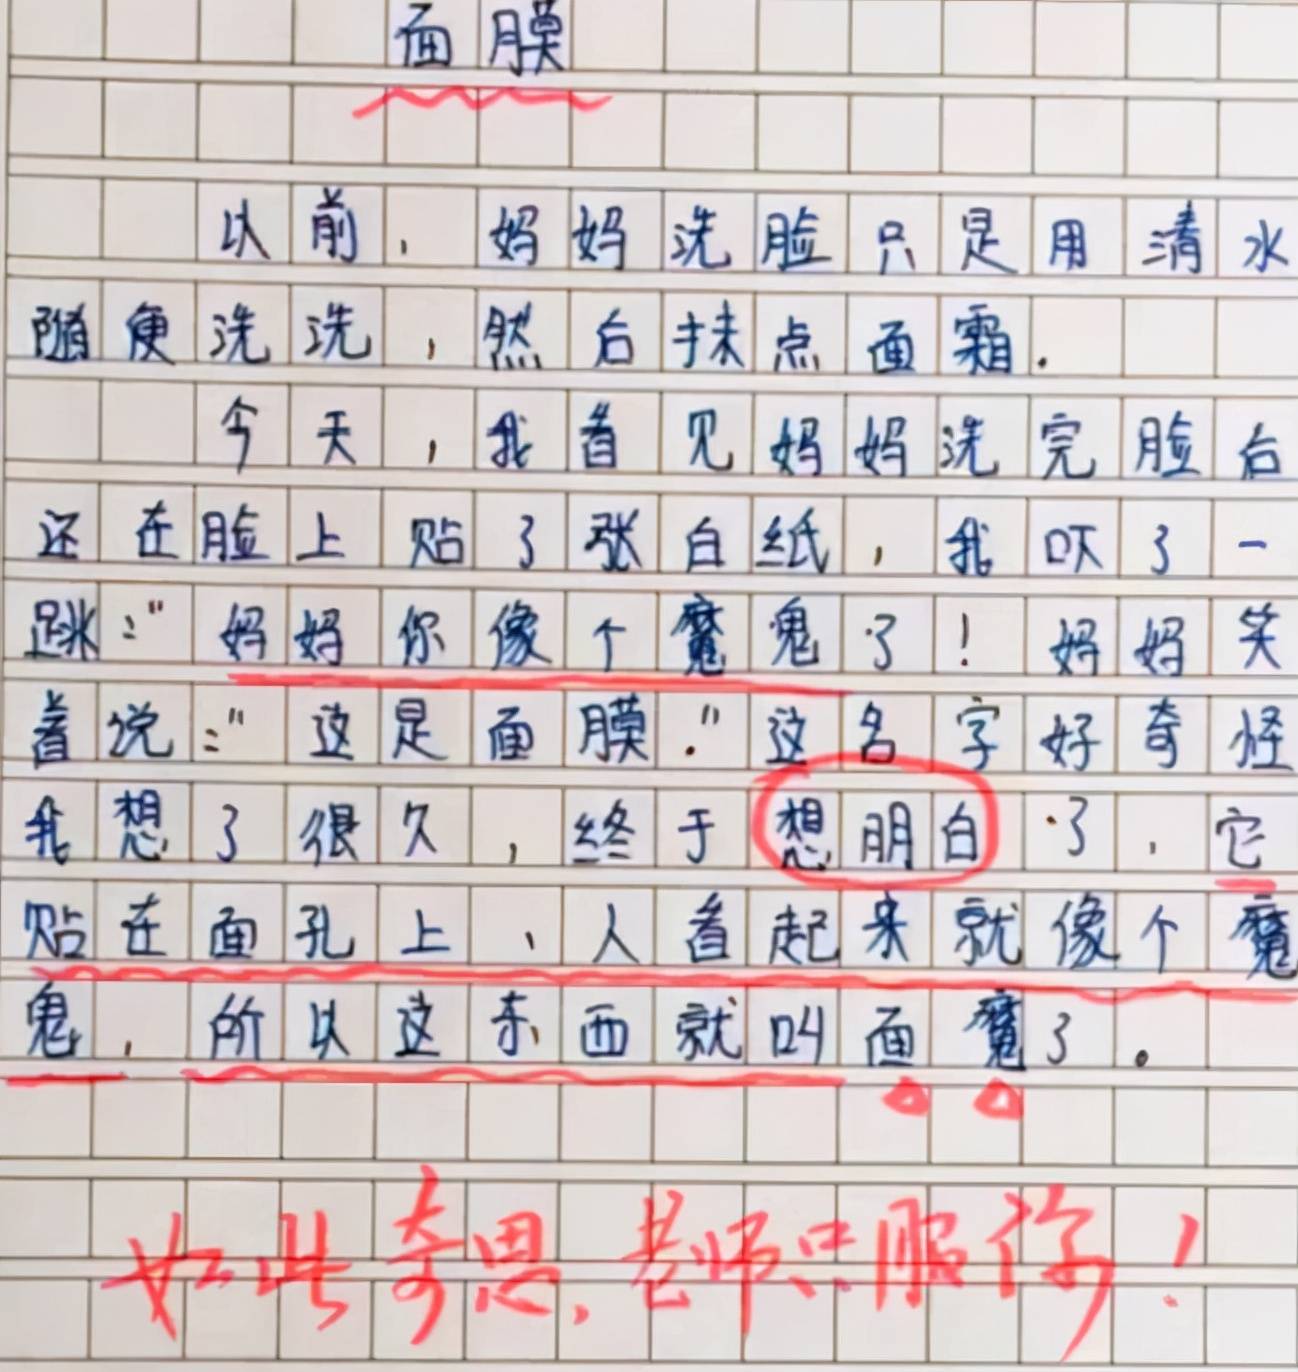 面膜
以前,妈妈洗脸只是用清水
随便洗洗,然后抹点面霜.
今天,我看见妈妈洗完脸后
还在脸上贴了张白纸,我吓了一
跳:"妈妈你像个魔鬼了!妈妈笑
着说:"这是面膜."这名字好奇怪
我想了很久,终于想明白了,它
贴在面孔上、人看起来就像个魔
鬼,所以这东西就叫面魔了。
如此奇思,老师只服你!